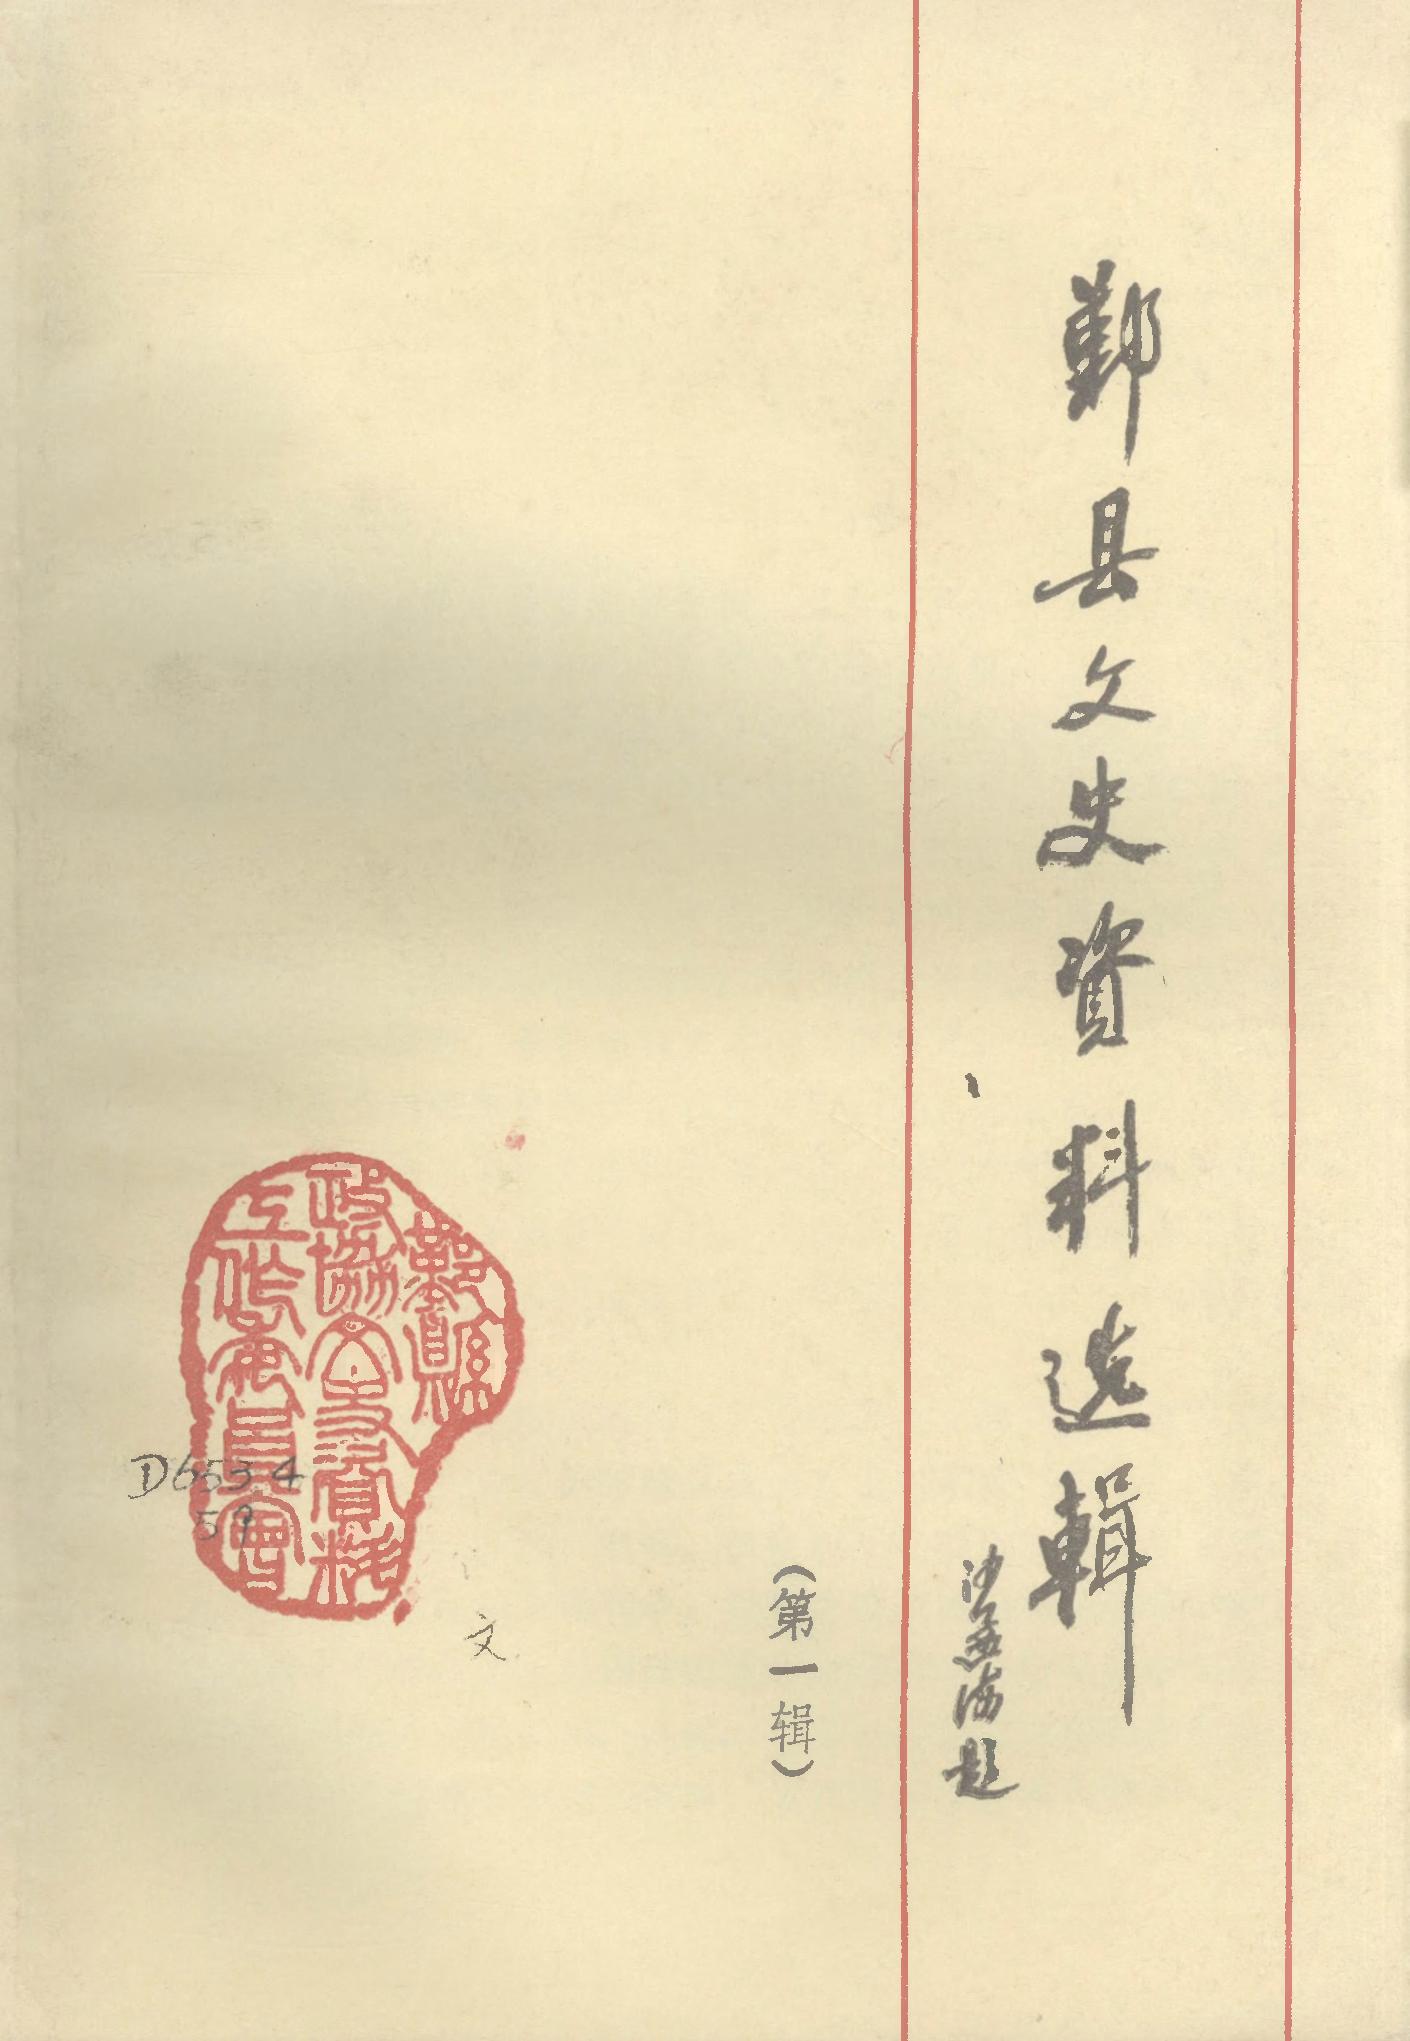 鄞县文史資料选輯
沙孟海题
（第一辑）
鄞縣
政協文史資料
工作委員會
D653.4
59
文